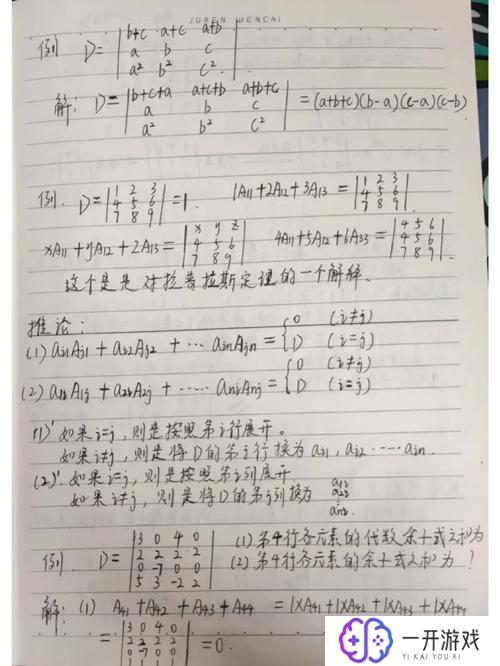 JUREN WENCAI
例 D=|b+c a+c a+b|
|a b c|
|a² b² c²|
解: D=|b+c+a a+c+b a+b+c| =(a+b+c)(b-a)(c-a)(c-b)
|a b c|
|a² b² c²|
例. D=|1 2 3| =1. 1A11+2A12+3A13=|1 2 3|
|4 5 6| |4 5 6|
|7 8 9| |7 8 9|
xA11+yA12+zA13=|x y z| 4A11+5A12+6A33=|4 5 6|
|4 5 6| |4 5 6|
|7 8 9| |7 8 9|
这个是是对拉普拉斯定理的一个解释.
推论:
(1) ai1Aj1+ai2Aj2+…ainAjn={0 (i≠j)
D (i=j)
(2) a1iA1j+a2iA2j+……aniAnj={0 (i≠j)
D (i=j)
(1)'如果i=j,则是按照第i行展开。
如果i≠j,则是将D的第j行换为ai1,ai2……ain.
(2)'.如果i=j,则是按照第i列展开
如果i≠j,则是将D的第j列换为 a1i
a2i
⋮
ani
例. D=|3 0 4 0| (1)第4行各元素的代数余十式之和为
|2 2 2 2| (2)第4行各元素的余十式之和为!
|0 -7 0 0|
|5 3 -2 2|
解:(1) A41+A42+A43+A44=1×A41+1×A42+1×A43+1×A44
=|3 0 4 0| =0.
|2 2 2 2|
|0 -7 0 0|
一开游戏
YI KAI YOU XI